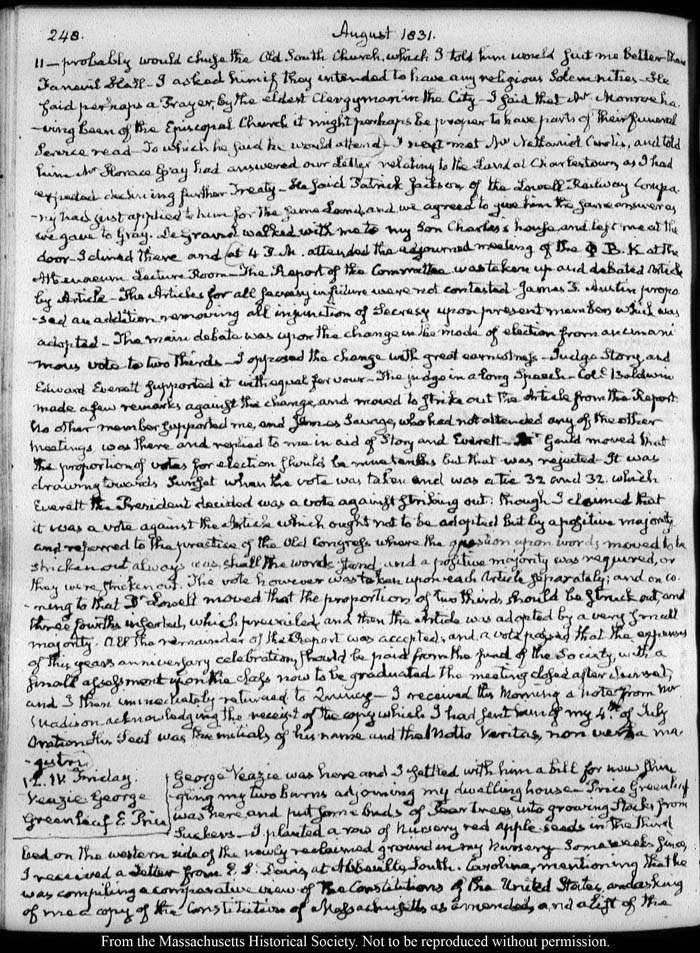 248.
August 1831.
11 — probably would chuse the Old South Church, which I told him would suit me better than
Faneuil Hall — I asked him if they intended to have any religious Solemnities — He
said perhaps a Prayer, by the eldest Clergyman in the City — I said that Mr. Monroe ha-
-ving been of the Episcopal Church it might perhaps be proper to have parts of their funeral
Service read — To which he said he would attend — I next met Mr Nathaniel Curtis, and told
him Mr Horace Gray had answered our Letter relating to the Land at Charlestown, as I had
expected declining further Treaty — He said Patrick Jackson, of the Lowell Railway Compa-
-ny had just applied to him for the same Land, and we agreed to give him the same answer as
we gave to Gray. Degrand walked with me to my Son Charles's house, and left me at the
door — I dined there and at 4 P.M. attended the adjourned meeting of the Φ.B.K at the
Athenaeum Lecture Room — The Report of the Committee was taken up and debated Article
by Article — The Articles for all secresy in future were not contested — James T. Austin propo
-sed an addition removing all injunction of Secresy upon present members which was
adopted — The main debate was upon the change in the mode of election from an unani
mous vote to two thirds — I opposed the change with great earnestness — Judge Story, and
Edward Everett supported it with equal fervour — The judge in a long Speech — Col. Baldwin
made a few remarks against the change, and moved to strike out the Article from the Report.
No other member supported me, and James Savage, who had not attended any of the other
meetings, was there and replied to me in aid of Story and Everett — Gould moved that
the proportion of votes for election should be nine tenths but that was rejected — It was
drawing towards Sunset when the vote was taken and was a tie 32 and 32. which
Everett the President decided was a vote against striking out: though I claimed that
it was a vote against the Article which ought not to be adopted but by a positive majority
and referred to the practice of the Old Congress where the question upon words moved to be
stricken out always was, shall the words stand, and a positive majority was required, or
they were stricken out. The vote however was taken upon each Article separately; and on co-
-ming to that Dr Lowell moved that the proportion of two thirds should be struck out, and
three fourths inserted, which prevailed and then the Article was adopted by a very small
majority. All the remainder of the Report was accepted, and a vote passing that the expenses
of this years anniversary celebration, should be paid from the fund of the Society, with a
small assessment upon the Class now to be graduated the meeting closed after Sunset,
and I then immediately returned to Quincy — I received this Morning a Note from Mr
Madison acknowledging the receipt of the copy which I had sent him of my 4th. of July
Oration. His Seal was the initials of his name and the Motto Veritas, non verba ma-
-gistri.
12. IV. Friday.
Veazie George
Greenleaf E Price
George Veazie was here and I settled with him a bill for new shin
gling my two Barns adjoining my dwelling house — Price Greenleaf
was here and put some buds of Pear trees, into growing Stocks from
Suckers — I planted a row of Nursery red apple-seeds in the third
bed on the western side of the newly reclaimed ground in my Nursery — Some weeks since,
I received a Letter from E. S. Davis, at Abbeville, South-Carolina, mentioning that he
was compiling a comparative view of the Constitutions of the United States, and asking
of me a copy of the Constitution of Massachusetts as amended, and a list of the
From the Massachusetts Historical Society. Not to be reproduced without permission.